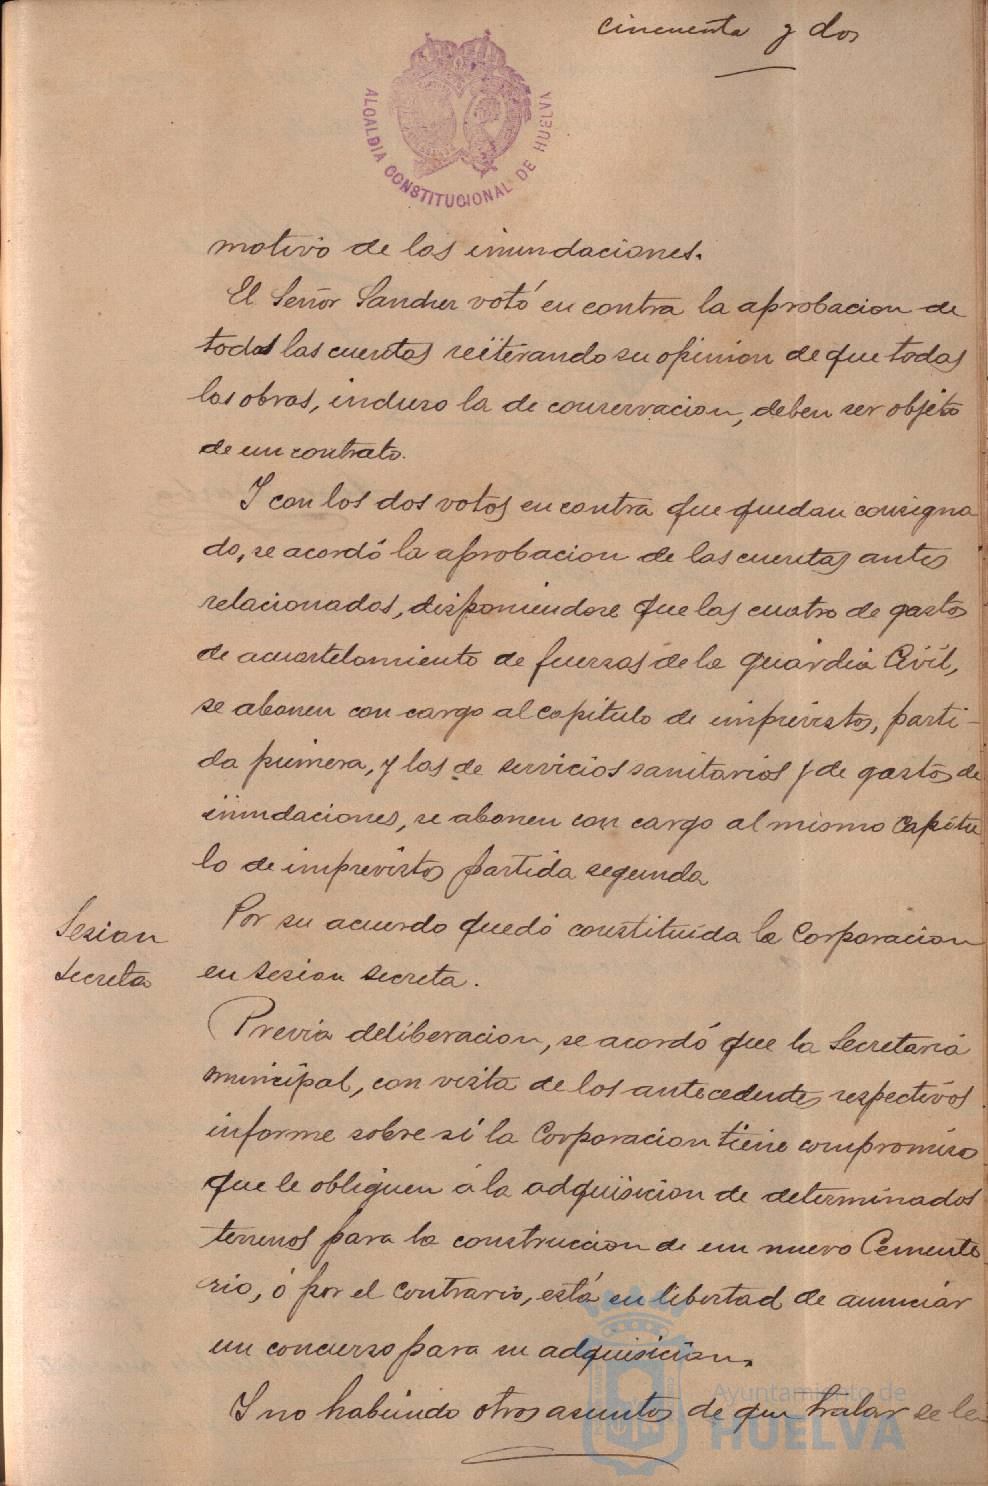 cincuenta y dos
ALCALDIA CONSTITUCIONAL DE HUELVA
motivo de las inundaciones.
El Señor Sanchez votó en contra la aprobacion de
todas las cuentas reiterando su opinion de que todas
las obras, incluso la de conservacion, deben ser objeto
de un contrato.
Y con los dos votos en contra que quedan consigna
do, se acordó la aprobacion de las cuentas antes
relacionadas, disponiendose que las cuatro de gastos
de acuartelamiento de fuerzas de la guardia Civil,
se abonen con cargo al capitulo de imprevistos, parti-
da primera, y las de servicios sanitarios y de gastos de
inundaciones, se abonen con cargo al mismo Capitu
lo de imprevistos partida segunda
Sesion
secreta
Por su acuerdo quedó constituida la Corporacion
en sesion secreta.
Previa deliberacion, se acordó que la Secretaria
municipal, con vista de los antecedentes respectivos
informe sobre si la Corporacion tiene compromiso
que le obliguen á la adquisicion de determinados
terrenos para la construccion de un nuevo Cemente
rio, ó por el contrario, está en libertad de anunciar
un concurso para su adquisicion.
Y no habiendo otros asuntos de que tratar se le-
Ayuntamiento de
HUELVA